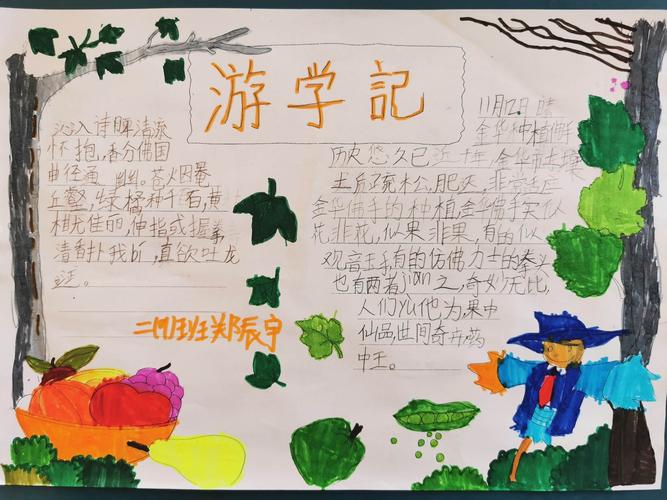 游学記
沁入诗脾清流
怀抱,香分佛国
曲径通幽。苍火因菴
丘壑,绿橘种千石,黄
柑无佳丽,伸指或握拳
清香扑我bí,直欲吐龙
涎。
二(四)班郑振宇
11月12日 晴
金华种植佛手
历史悠久已近千年,金华市土壤
土质疏松,肥沃,非常适应
金华佛手的种植,金华佛手实似
花非花,似果非果,有的似
观音玉手,有的仿佛力士的拳头
也有两者jiān之,奇妙无比,
人们yù他为,果中
仙品,世间奇卉,药
中王。